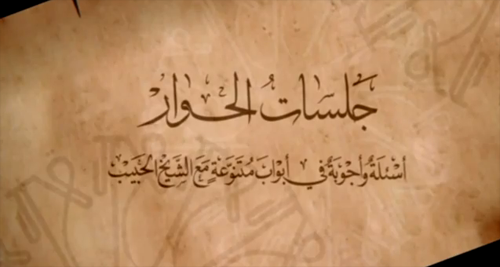 جَلَسَاتُ الحِوَارْ
أسْئِلَةٌ وَأجْوِبَةٌ فِي أبْوَابَ مُتَنَوِّعَةٍ مَعَ الشَّيْخِ الحَبِيبْ